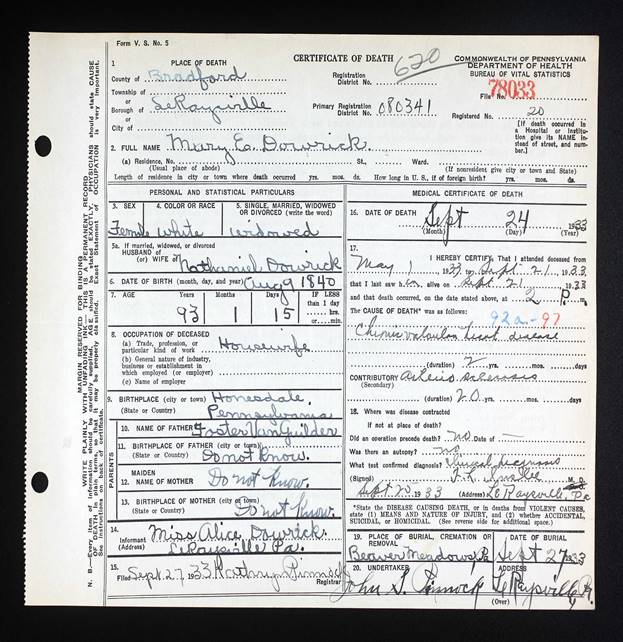 Form V. S. No. 5
CERTIFICATE OF DEATH
620
COMMONWEALTH OF PENNSYLVANIA
DEPARTMENT OF HEALTH
BUREAU OF VITAL STATISTICS
1 PLACE OF DEATH
County of Bradford
Township of
Borough of LeRaysville
City of
Registration District No.
Primary Registration District No. 080341
File No. 78033
Registered No. 20
[If death occurred in a Hospital or Institution give its NAME instead of street, and number.]
2. FULL NAME Mary E. Dowrick.
(a) Residence, No. St., Ward.
(Usual place of abode) (If nonresident give city or town and State)
Length of residence in city or town where death occurred yrs. mos. ds. How long in U. S., if of foreign birth? yrs. mos. ds.
PERSONAL AND STATISTICAL PARTICULARS
3. SEX 4. COLOR OR RACE 5. SINGLE, MARRIED, WIDOWED OR DIVORCED (write the word)
Female White widowed
5a. If married, widowed, or divorced
HUSBAND of
(or) WIFE of Nathaniel Dowrick
6. DATE OF BIRTH (month, day, and year) Aug 9 1840
7. AGE Years Months Days IF LESS than 1 day hrs. or min.
93 1 15
8. OCCUPATION OF DECEASED
(a) Trade, profession, or particular kind of work Housewife
(b) General nature of industry, business or establishment in which employed (or employer)
(c) Name of employer
9. BIRTHPLACE (city or town) Honesdale,
(State or Country) Pennsylvania
PARENTS
10. NAME OF FATHER Foster VanGuilder
11. BIRTHPLACE OF FATHER (city or town)
(State or Country) Do not know.
12. MAIDEN NAME OF MOTHER Do not know.
13. BIRTHPLACE OF MOTHER (city or town)
(State or Country) Do not know.
14. Informant Miss Alice Dowrick.
(Address) LeRaysville Pa.
15. Filed Sept 27, 1933 Kathryn Pinnock Registrar
MEDICAL CERTIFICATE OF DEATH
16. DATE OF DEATH Sept 24 1933
(Month) (Day) (Year)
17. I HEREBY CERTIFY, That I attended deceased from
May 1 1933, to Sept. 21, 1933
that I last saw her alive on Sept. 21, 1933
and that death occurred, on the date stated above, at 2 P. m.
The CAUSE OF DEATH* was as follows:
92a-97
Chronic valvular heart disease
(duration) 2 yrs. mos. ds.
CONTRIBUTORY Arterio sclerosis
(Secondary)
(duration) 20 yrs. mos. ds.
18. Where was disease contracted
if not at place of death?
Did an operation precede death? no Date of —
Was there an autopsy? no
What test confirmed diagnosis?
(Signed) M. D.
Sept. 1933 (Address) Le Raysville, Pa
*State the DISEASE CAUSING DEATH, or in deaths from VIOLENT CAUSES, state (1) MEANS AND NATURE OF INJURY, and (2) whether ACCIDENTAL, SUICIDAL, or HOMICIDAL. (See reverse side for additional space.)
19. PLACE OF BURIAL, CREMATION OR REMOVAL DATE OF BURIAL
Beaver Meadows, Pa Sept 27 1933
20. UNDERTAKER ADDRESS
John S. Pinnock LeRaysville, Pa.
(Over)
MARGIN RESERVED FOR BINDING
WRITE PLAINLY WITH UNFADING INK—THIS IS A PERMANENT RECORD
N. B.—Every item of information should be carefully supplied. AGE should be stated EXACTLY. PHYSICIANS should state CAUSE OF DEATH in plain terms, so that it may be properly classified. Exact Statement of OCCUPATION is very important. See instructions on back of certificate.